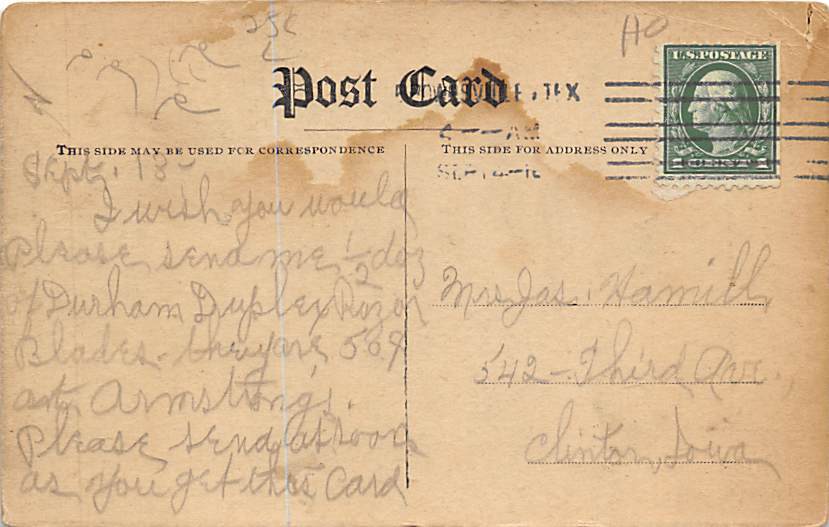 25c
HO
U.S. POSTAGE
Post Card
TEX
AM
THIS SIDE MAY BE USED FOR CORRESPONDENCE
THIS SIDE FOR ADDRESS ONLY
Sept. 18-
I wish you would
Please send me 1/2 doz
of Durham Duplex Razor
Blades. they are 50¢
at Armstrong's.
Please send as soon
as you get this Card
Mrs Jas. Hamill,
542 - Third Ave.,
Clinton, Iowa